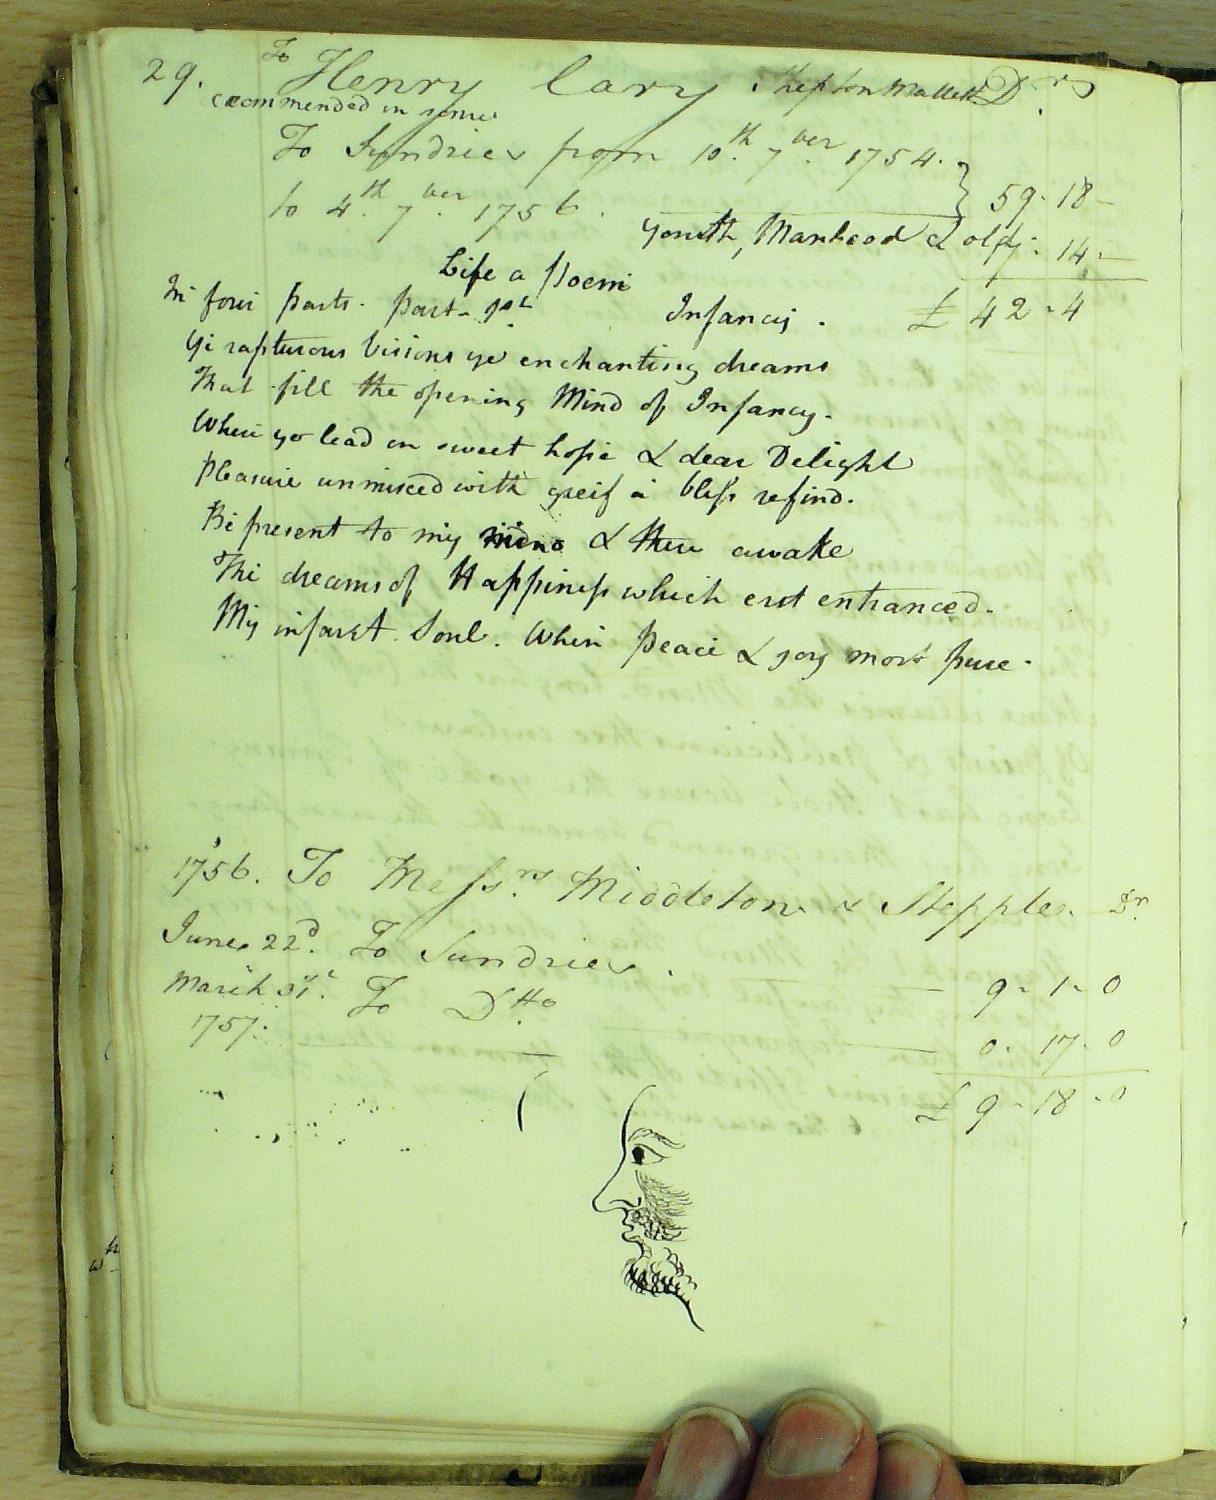 29. To Henry Cary Shepton Mallett Drs
recommended in some
To Sundries from 10th 7ber 1754.
to 4th 7ber 1756. } 59-18-
Youth, Manhood & old 17-14-
Life a Poem
In four parts. Part- 1st Infancy. £ 42-4
Ye rapturous Visions ye enchanting dreams
That fill the opening Mind of Infancy.
When ye lead on sweet hope & dear Delight
Pleasure unmixed with greif a bless refind.
Be present to my mind & thou awake
The dreams of Happiness which erst entranced.
My infant Soul. When Peace & joy most pure.
1756. To Messrs Middleton & Stepples. Dr
June 22d. To Sundries. - 9-1-0
March 31st. To Dtto
1757. 0-17-0
£ 9-18-0